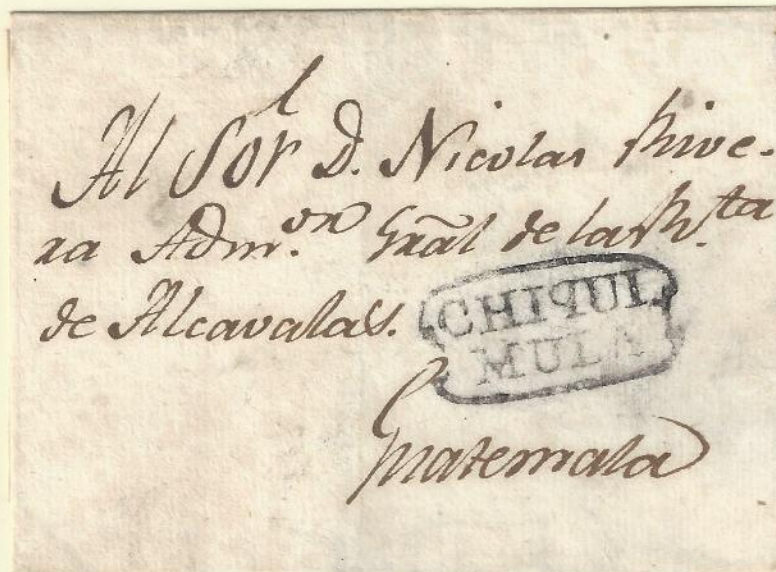 Al Sor D. Nicolas Rive-
ra Admon. Gral de la Rta
de Alcavalas.
CHIQUI
MULA
Guatemala